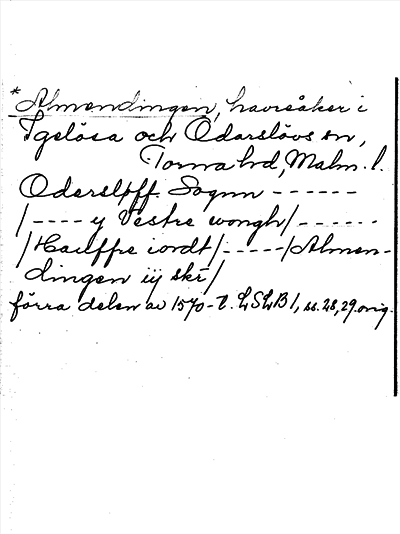 *Almendingen, havreåker i
Igelösa och Odarslövs sn,
Torna hd, Malm. l.
Oderslöff Sognn - - - - - -
/- - - - y Vestre wongh/- - - - - -
/Haffre iordt/- - - - -/Almen-
dingen iij skr/
förra delen av 1570-t. LSLB 1, ss. 28, 29. orig.